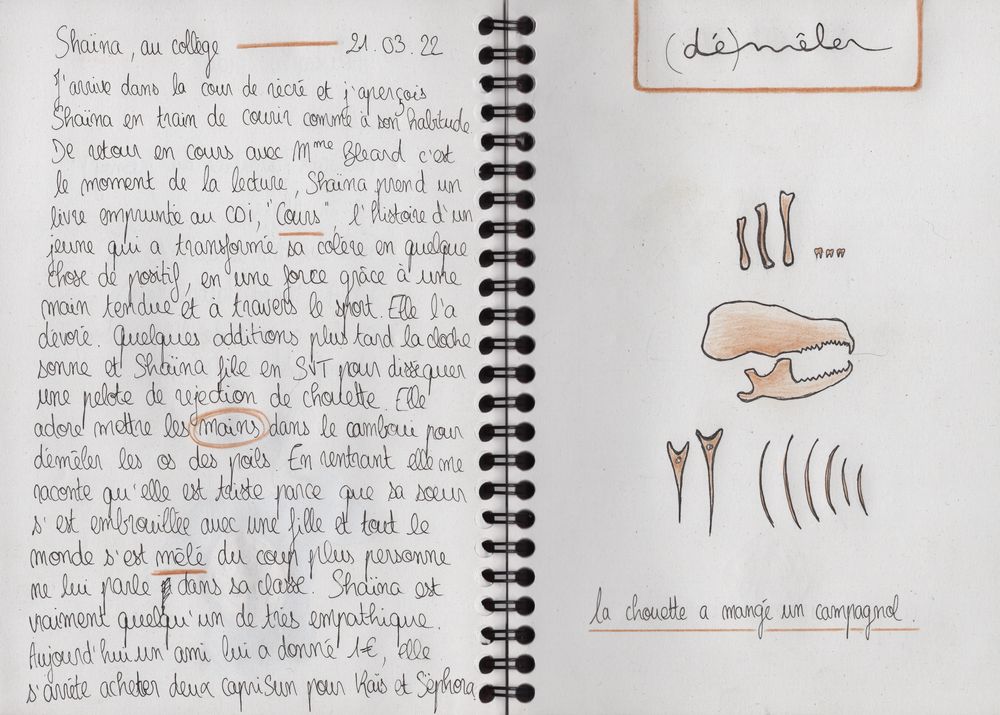 Shaïna, au collège 21.03.22
J'arrive dans la cour de récré et j'aperçois
Shaïna en train de courir comme à son habitude.
De retour en cours avec Mme Bleard c'est
le moment de la lecture, Shaïna prend un
livre emprunté au CDI, "Cours" l'histoire d'un
jeune qui a transformé sa colère en quelque
chose de positif, en une force grâce à une
main tendue et à travers le sport. Elle l'a
dévoré. Quelques additions plus tard la cloche
sonne et Shaïna file en SVT pour disséquer
une pelote de rejection de chouette. Elle
adore mettre les mains dans le camboui pour
démêler les os des poils. En rentrant elle me
raconte qu'elle est triste parce que sa soeur
s'est embrouillée avec une fille et tout le
monde s'est mêlé du coup plus personne
ne lui parle dans sa classe. Shaïna est
vraiment quelqu'un de très empathique.
Aujourd'hui un ami lui a donné 1€, elle
s'arrête acheter deux caprisun pour Kaïs et Séphora
(dé)mêler
la chouette a mangé un campagnol.